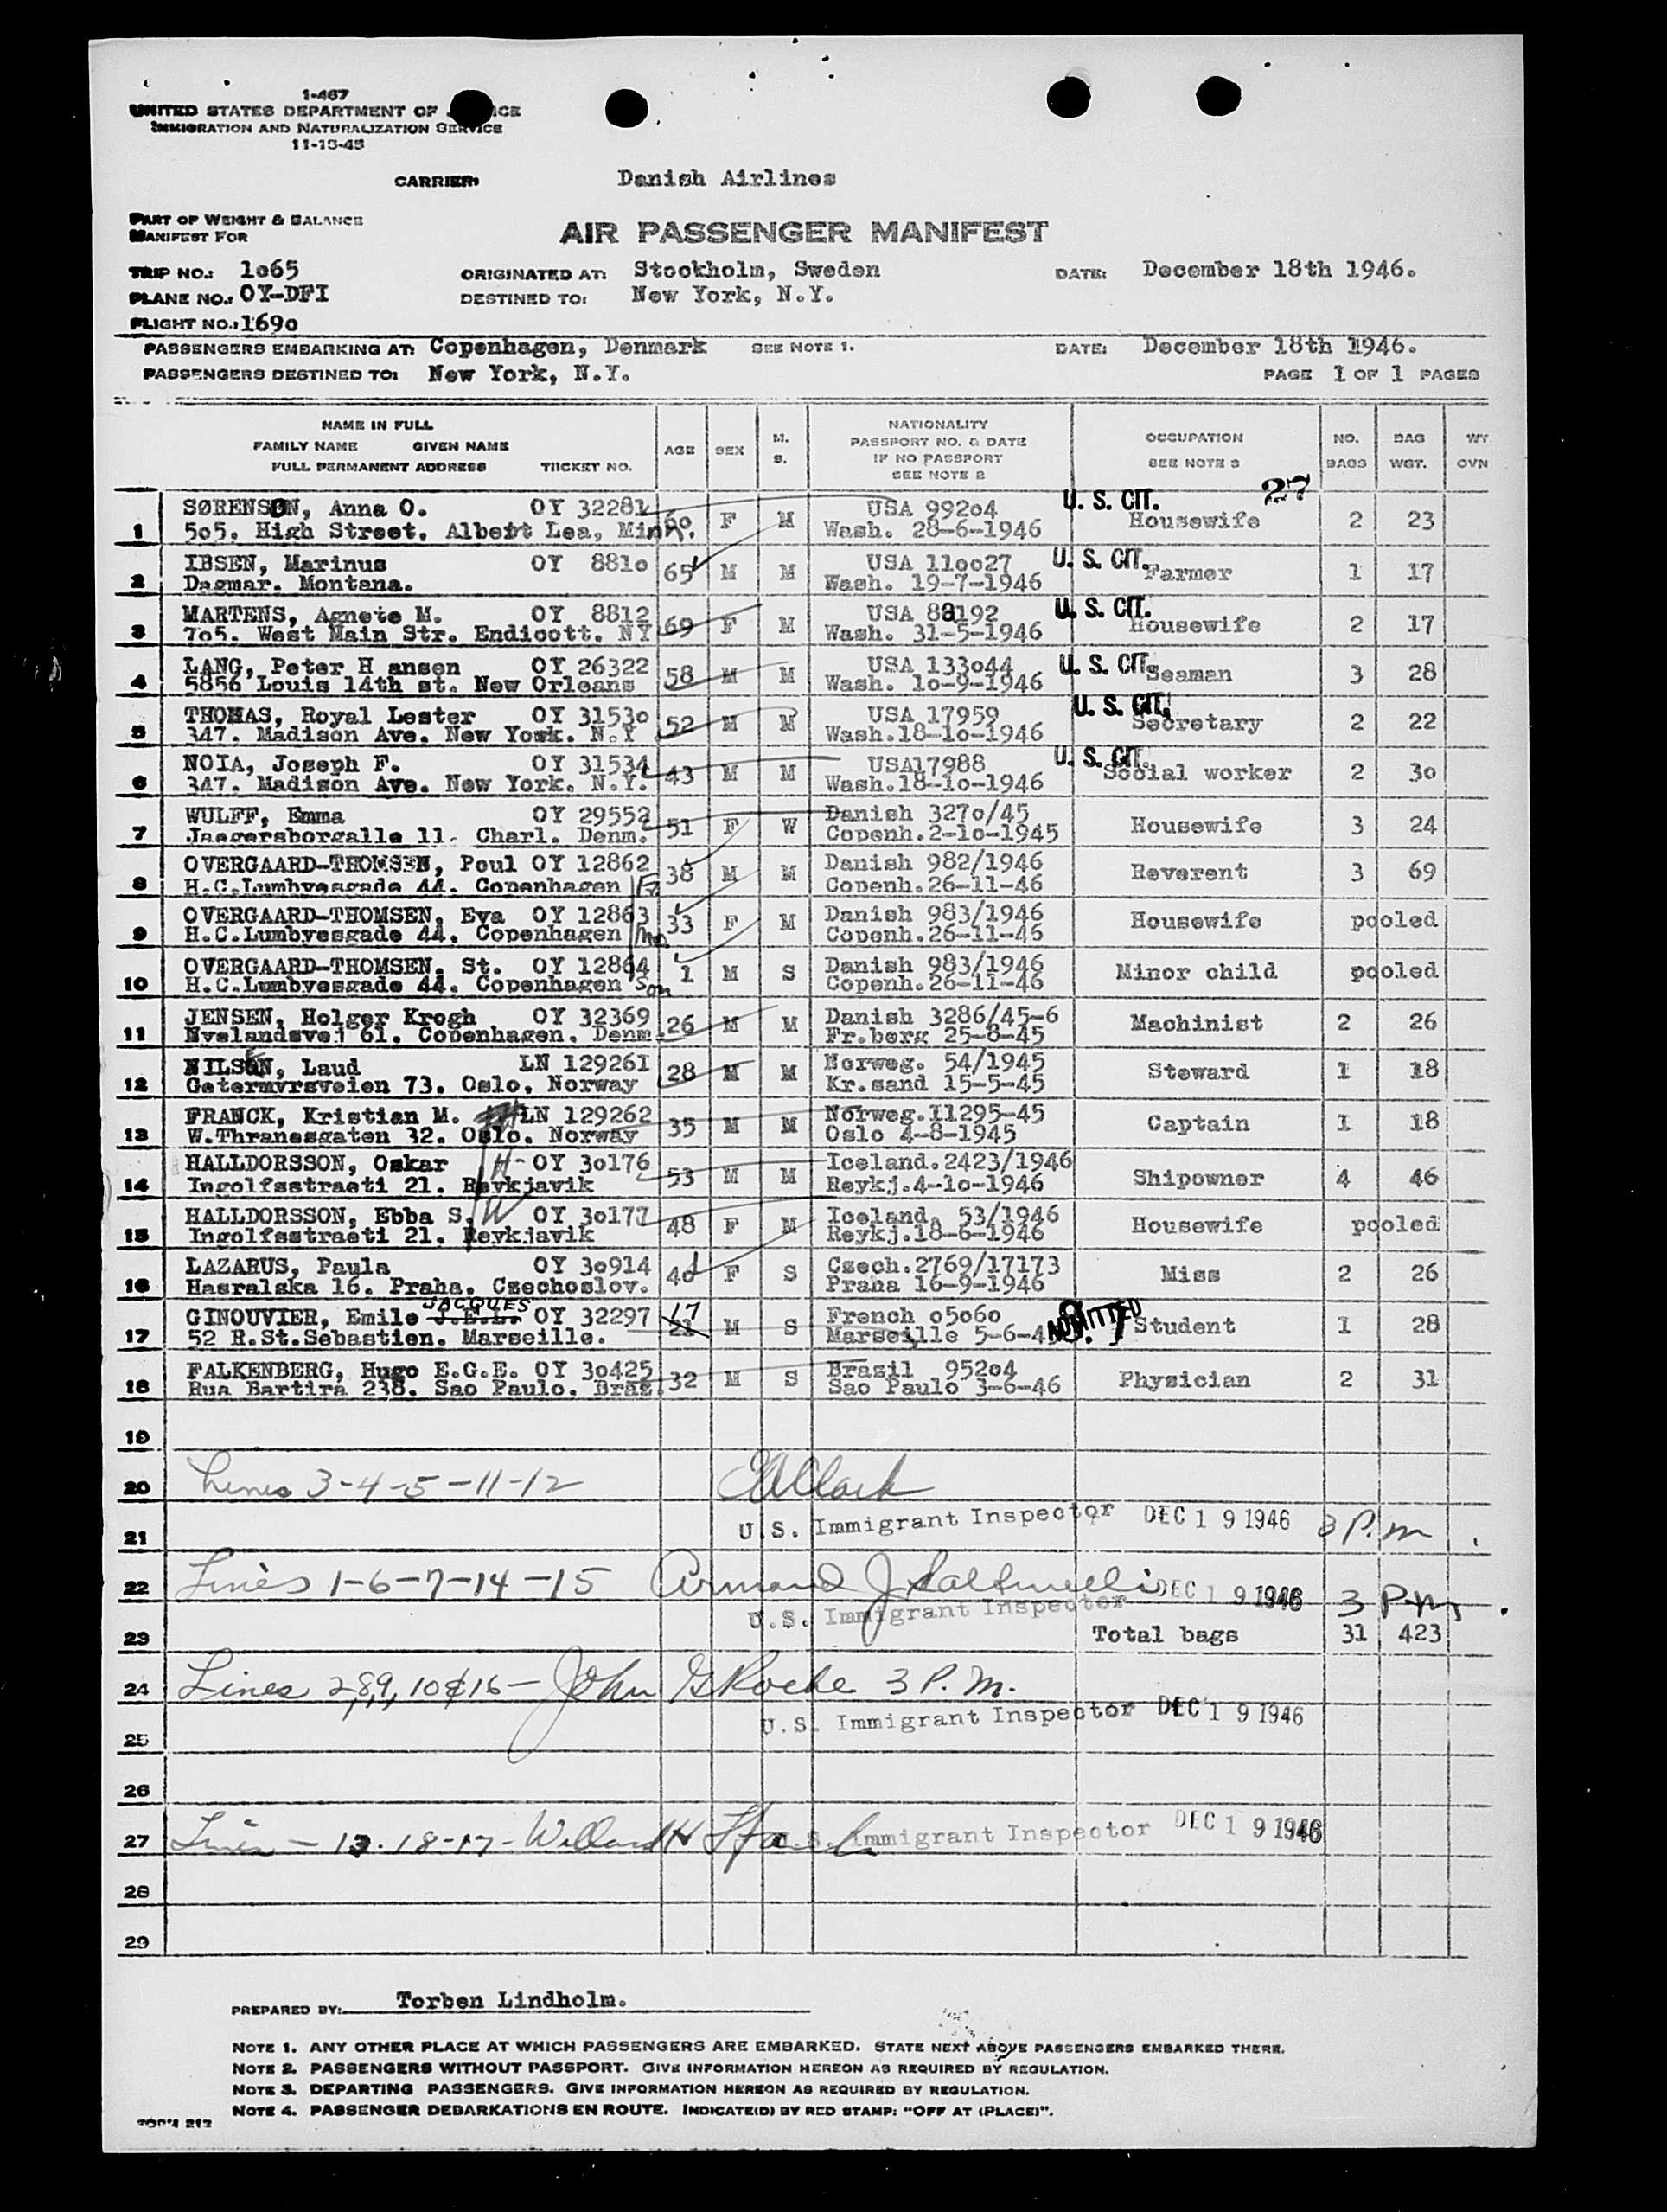 1-467
UNITED STATES DEPARTMENT OF JUSTICE
IMMIGRATION AND NATURALIZATION SERVICE
11-15-45
CARRIER: Danish Airlines
PART OF WEIGHT & BALANCE
MANIFEST FOR
AIR PASSENGER MANIFEST
TRIP NO.: 1o65 ORIGINATED AT: Stockholm, Sweden DATE: December 18th 1946.
PLANE NO.: OY-DFI DESTINED TO: New York, N.Y.
FLIGHT NO.: 169o
PASSENGERS EMBARKING AT: Copenhagen, Denmark SEE NOTE 1. DATE: December 18th 1946.
PASSENGERS DESTINED TO: New York, N.Y. PAGE 1 OF 1 PAGES
NAME IN FULL
FAMILY NAME GIVEN NAME
FULL PERMANENT ADDRESS TICKET NO.
AGE SEX M. S.
NATIONALITY
PASSPORT NO. & DATE
IF NO PASSPORT
SEE NOTE 2
OCCUPATION
SEE NOTE 3
NO. BAGS
BAG WGT.
WT OVN
27
1 SØRENSON, Anna O. OY 32281 60 F M USA 992o4 U. S. CIT. Housewife 2 23
5o5. High Street. Albert Lea, Minn. Wash. 28-6-1946
2 IBSEN, Marinus OY 881o 65 M M USA 11oo27 U. S. CIT. Farmer 1 17
Dagmar. Montana. Wash. 19-7-1946
3 MARTENS, Agnete M. OY 8812 69 F M USA 88192 U. S. CIT. Housewife 2 17
7o5. West Main Str. Endicott. NY Wash. 31-5-1946
4 LANG, Peter H ansen OY 26322 58 M M USA 133o44 U. S. CIT. Seaman 3 28
5856 Louis 14th st. New Orleans Wash. 1o-9-1946
5 THOMAS, Royal Lester OY 3153o 52 M M USA 17959 U. S. CIT. Secretary 2 22
347. Madison Ave. New York. N.Y Wash.18-1o-1946
6 NOIA, Joseph F. OY 31534 43 M M USA17988 U. S. CIT. Social worker 2 3o
347. Madison Ave. New York. N.Y. Wash.18-1o-1946
7 WULFF, Emma OY 29552 51 F W Danish 327o/45 Housewife 3 24
Jaegersborgalle 11. Charl. Denm. Copenh.2-1o-1945
8 OVERGAARD-THOMSEN, Poul OY 12862 38 M M Danish 982/1946 Reverent 3 69
H.C.Lumbyesgade 44. Copenhagen Fa Copenh.26-11-46
9 OVERGAARD-THOMSEN, Eva OY 12863 33 F M Danish 983/1946 Housewife pooled
H.C.Lumbyesgade 44. Copenhagen Mo Copenh.26-11-46
10 OVERGAARD-THOMSEN. St. OY 12864 1 M S Danish 983/1946 Minor child pooled
H.C.Lumbyesgade 44. Copenhagen Son Copenh.26-11-46
11 JENSEN, Holger Krogh OY 32369 26 M M Danish 3286/45-6 Machinist 2 26
Nyelandsvej 61. Copenhagen. Denm. Fr.berg 25-8-45
12 NILSEN, Laud LN 129261 28 M M Norweg. 54/1945 Steward 1 18
Getermyrsveien 73. Oslo, Norway Kr.sand 15-5-45
13 FRANCK, Kristian M. LN 129262 35 M M Norweg.11295-45 Captain 1 18
W.Thranesgaten 32. Oslo. Norway Oslo 4-8-1945
14 HALLDORSSON, Oskar H- OY 3o176 53 M M Iceland.2423/1946 Shipowner 4 46
Ingolfsstraeti 21. Reykjavik Reykj.4-1o-1946
15 HALLDORSSON, Ebba S. W OY 3o177 48 F M Iceland. 53/1946 Housewife pooled
Ingolfsstraeti 21. Reykjavik Reykj.18-6-1946
16 LAZARUS, Paula OY 3o914 F S Czech.2769/17173 Miss 2 26
Hasralska 16. Praha. Czechoslov. Praha 16-9-1946
JACQUES
17 GINOUVIER, Emile J.E.L. OY 32297 17 21 M S French o5o6o ADMITTED Student 1 28
52 R.St.Sebastien. Marseille. Marseille 5-6-4
18 FALKENBERG, Hugo E.G.E. OY 3o425 32 M S Brasil 952o4 Physician 2 31
Rua Bartira 238. Sao Paulo. Braz. Sao Paulo 3-6-46
19
20 Lines 3-4-5-11-12 EAClark
21 U.S. Immigrant Inspector DEC 19 1946 3 P.m
22 Lines 1-6-7-14-15 Armand J DEC 19 1946 3 P.m.
U.S. Immigrant Inspector
23 Total bags 31 423
24 Lines 2,8,9,10 & 16 - John G Roche 3 P.M.
U.S. Immigrant Inspector DEC 19 1946
25
26
27 Lines - 13-18-17- Willard H U.S. Immigrant Inspector DEC 19 1946
28
29
PREPARED BY: Torben Lindholm.
NOTE 1. ANY OTHER PLACE AT WHICH PASSENGERS ARE EMBARKED. STATE NEXT ABOVE PASSENGERS EMBARKED THERE.
NOTE 2. PASSENGERS WITHOUT PASSPORT. GIVE INFORMATION HEREON AS REQUIRED BY REGULATION.
NOTE 3. DEPARTING PASSENGERS. GIVE INFORMATION HEREON AS REQUIRED BY REGULATION.
NOTE 4. PASSENGER DEBARKATIONS EN ROUTE. INDICATE(D) BY RED STAMP: "OFF AT (PLACE)".
FORM 212